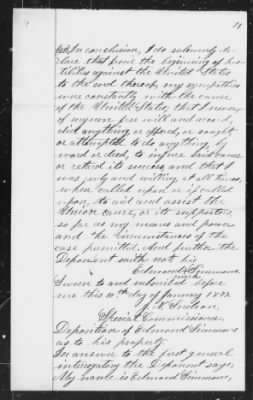 18
In conclusion, I do solemnly de-
clare that from the beginning of hos-
tilities against the United States
to the end thereof, my sympathies
were constantly with the cause
of the United States, that I never,
of my own free will and accord,
did anything, or offered, or sought
or attempted to do anything, by
word or deed, to injure said cause
or retard its success, and that I
was ready and willing at all times,
when called upon, or if called
upon, to aid and assist the
Union cause, or its supporters,
so far as my means and power
and the circumstances of the
case permitted. And further the
Deponent saith not his
Edmond Simmons
mark
Sworn to and submitted before
me this 10th day of January
Special Commissioner
Deposition of Edmond Simmons
as to his property.
In answer to the first general
interrogatory the Deponent says:
My name is Edmond Simmons,